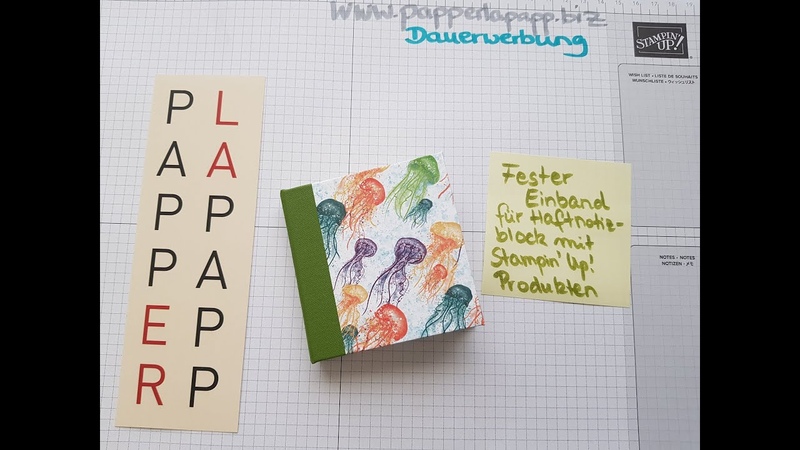 www.papperlapapp.biz
Dauerwerbung
STAMPIN' UP!
WISH LIST • LISTE DE SOUHAITS
WUNSCHLISTE • ウィッシュリスト
P L
A A
P P
P A
E P
R P
Fester
Einband
für Haftnotiz-
block mit
Stampin' Up!
Produkten
NOTES • NOTES
NOTIZEN • メモ